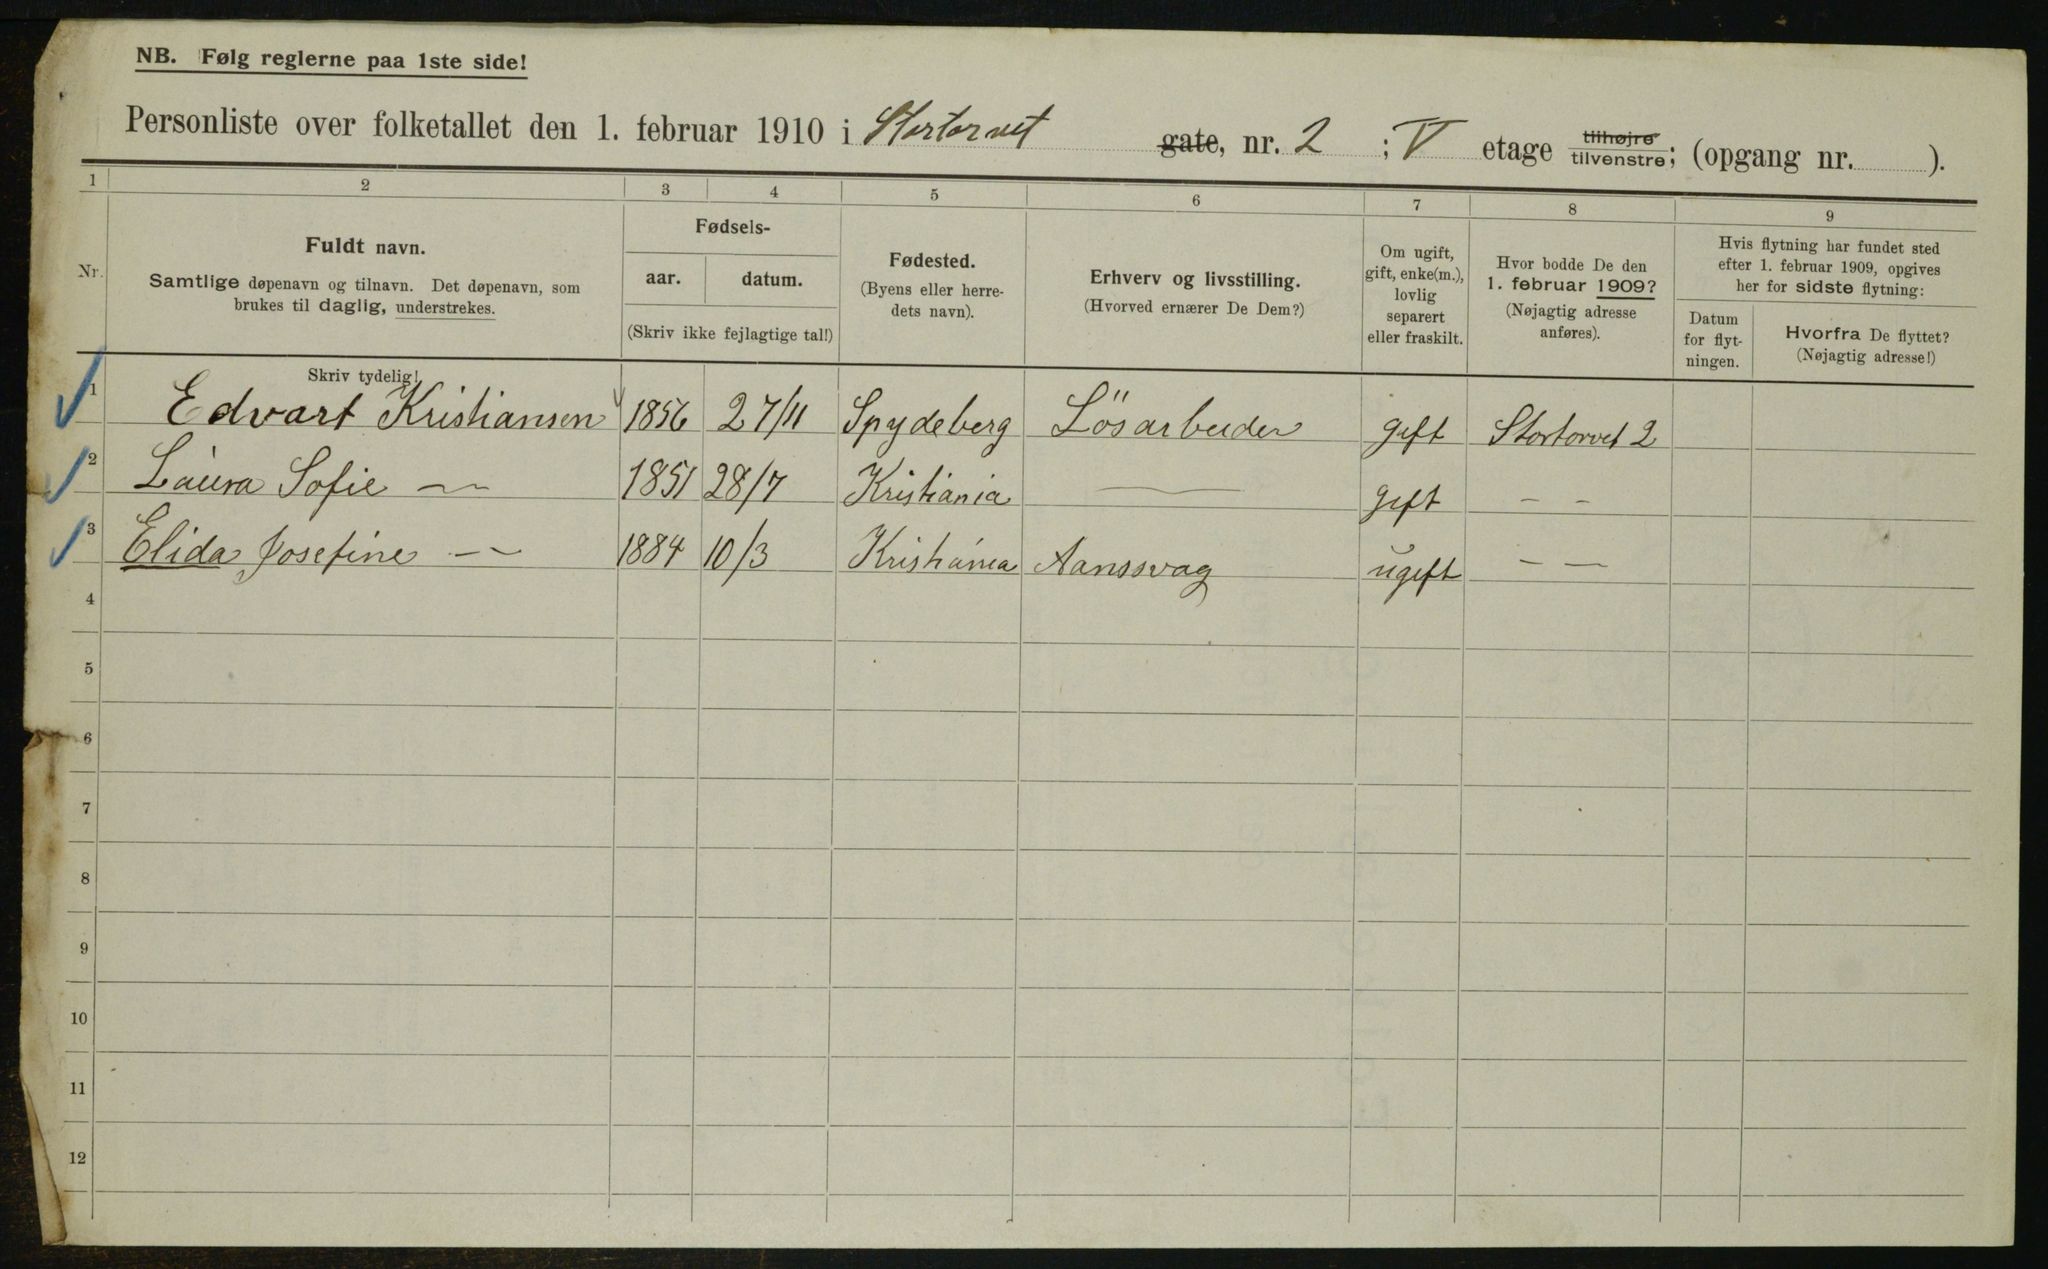 NB. Følg reglerne paa 1ste side!
Personliste over folketallet den 1. februar 1910 i Stortorvet gate, nr. 2 ; V etage tilhøjre tilvenstre; (opgang nr. ).
1 2 3 4 5 6 7 8 9
Nr.
Fuldt navn.
Samtlige døpenavn og tilnavn. Det døpenavn, som
brukes til daglig, understrekes.
Fødsels-
aar. datum.
(Skriv ikke fejlagtige tal!)
Fødested.
(Byens eller herre-
dets navn).
Erhverv og livsstilling.
(Hvorved ernærer De Dem?)
Om ugift,
gift, enke(m.),
lovlig
separert
eller fraskilt.
Hvor bodde De den
1. februar 1909?
(Nøjagtig adresse
anføres).
Hvis flytning har fundet sted
efter 1. februar 1909, opgives
her for sidste flytning:
Datum
for flyt-
ningen.
Hvorfra De flyttet?
(Nøjagtig adresse!)
Skriv tydelig!
1 Edvart Kristiansen 1856 27/11 Spydeberg Lösarbeider gift Stortorvet 2
2 Laura Sofie — 1851 28/7 Kristiania — gift – –
3 Elida Josefine – – 1884 10/3 Kristiania Aanssvag ugift – –
4
5
6
7
8
9
10
11
12